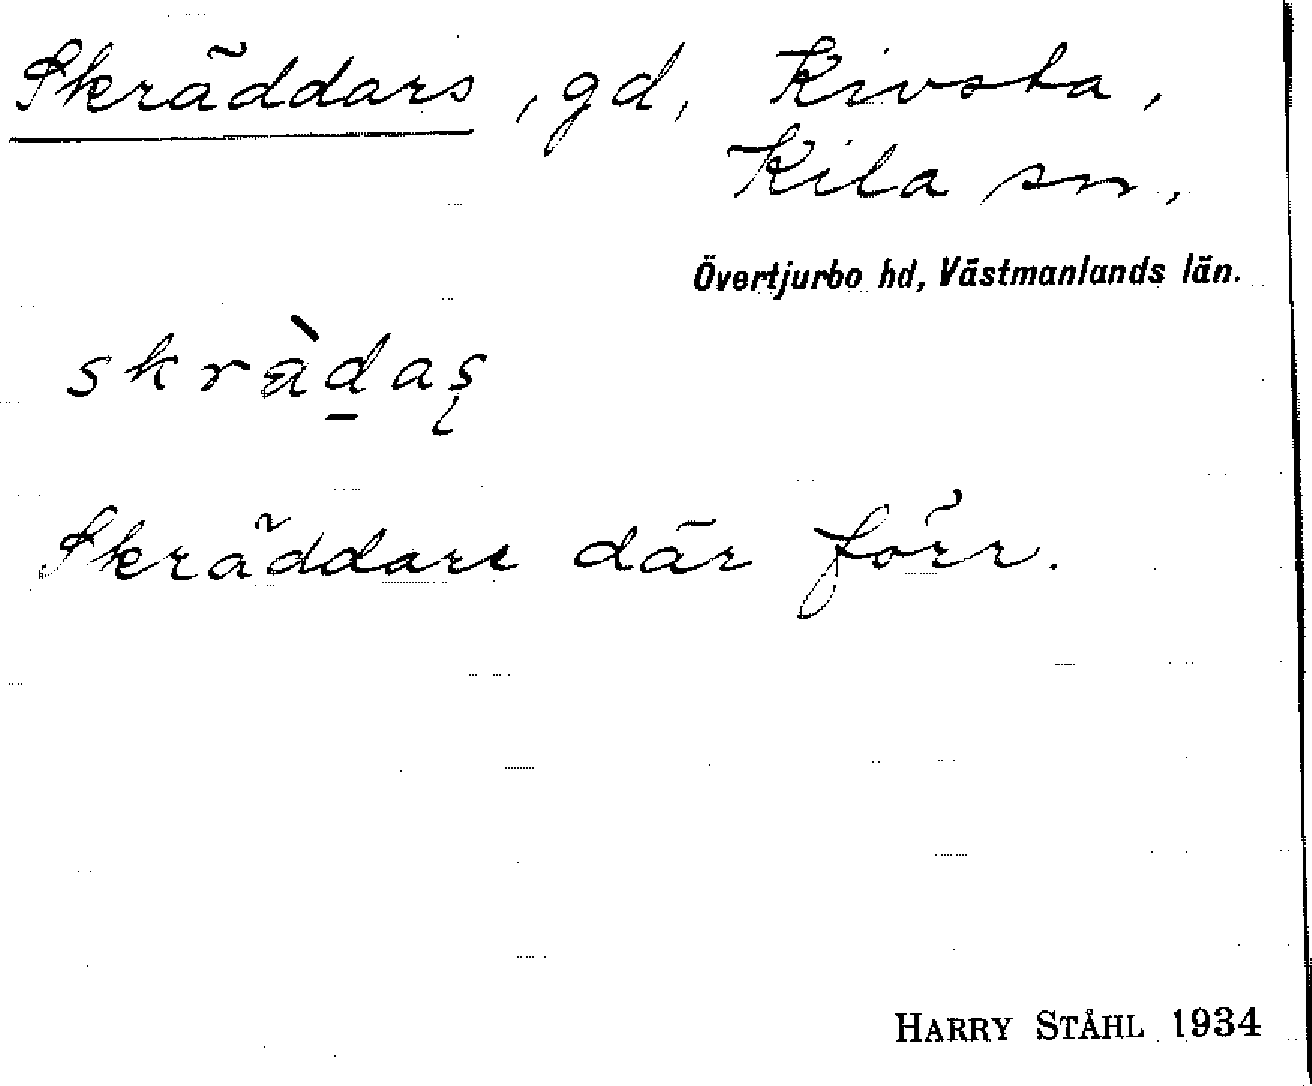 Skräddars, gd, Kivsta,
Kila sn,
Övertjurbo hd, Västmanlands län.
skrä̀d̠aʂ
Skräddare där förr.
HARRY STÅHL 1934